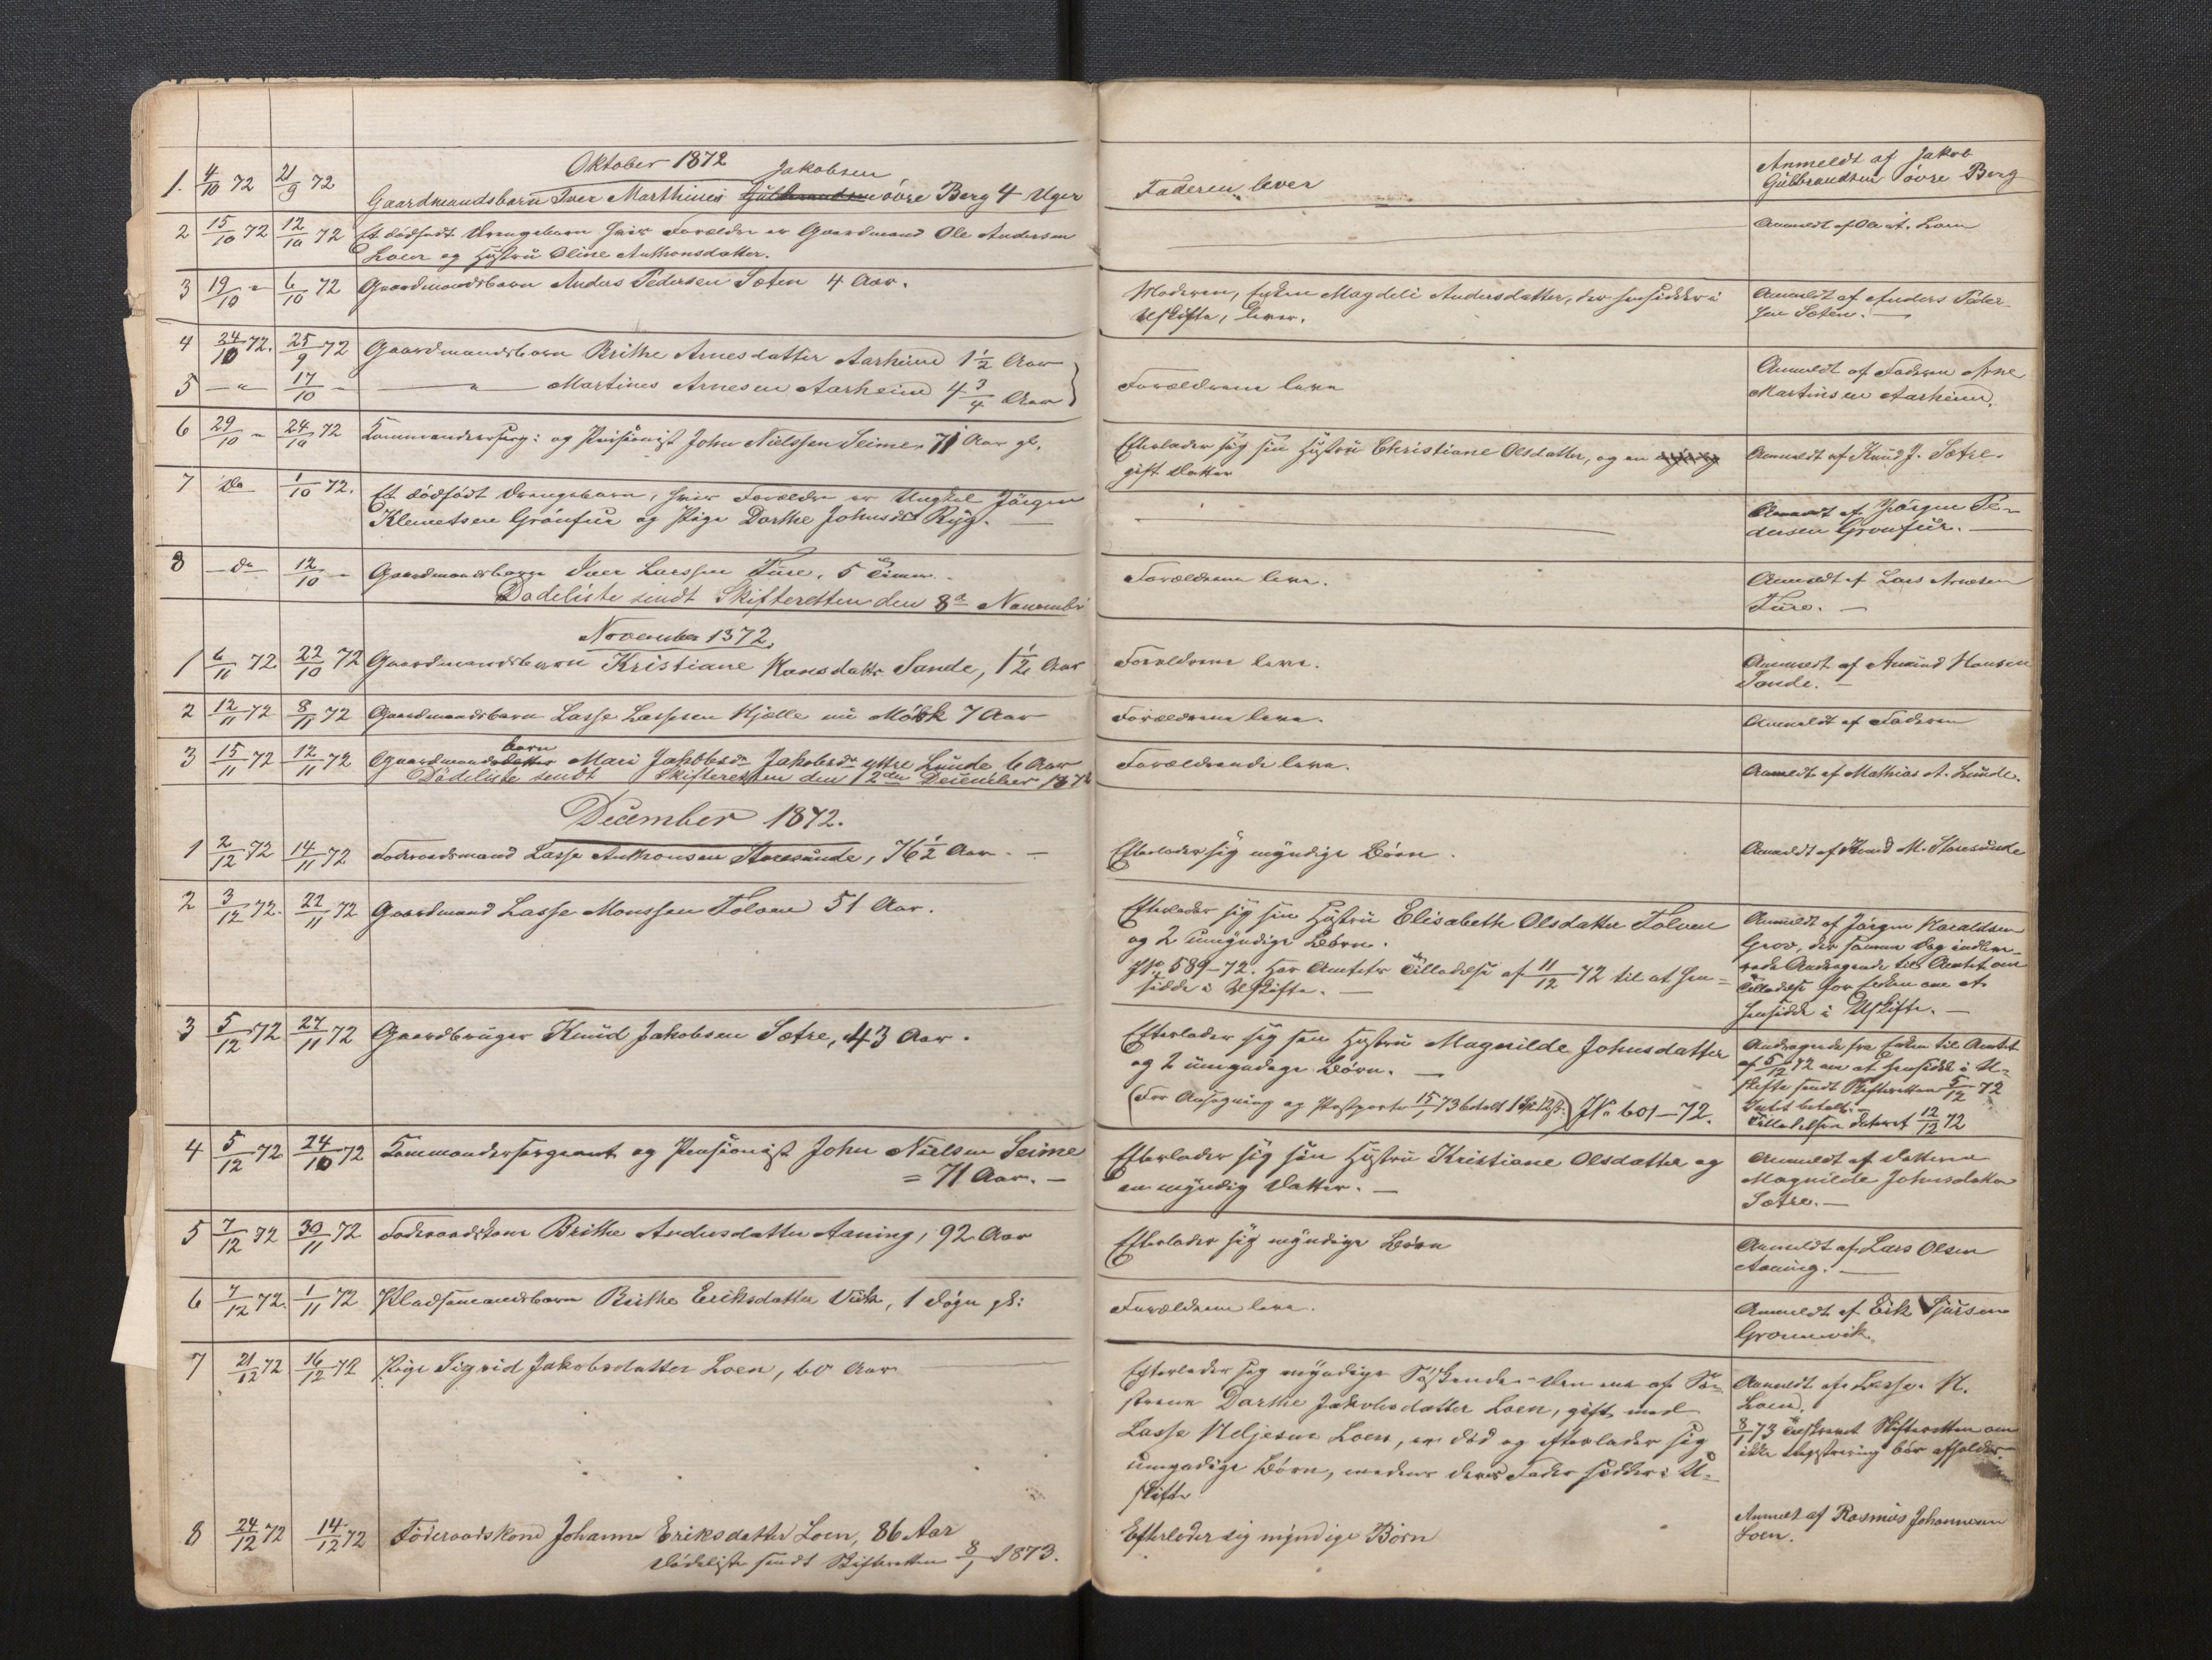 Oktober 1872
Jakobsen
1. 4/10 72 21/9 72 Gaardmandsbarn Iver Marthines Gulbrandsen övre Berg 4 Uger
Faderen lever
Anmeldt af Jakob
Gulbrandsen övre Berg
2 15/10 72 12/10 72 Et dödfödt Drengebarn hvis Forældre er Gaardmand Ole Andersen
Loen og Hustru Oline Anthonsdatter.
Anmeldt af Ole A. Loen
3 19/10 " 6/10 72 Gaardmandsbarn Anders Pedersen Sæten 4 Aar.
Moderen, Enken Magdeli Andersdatter, der hensidder i
Uskifte, lever.
Anmeldt af Anders Peder-
sen Sæten. —
4 24/10 72. 25/9 72 Gaardmandsbarn Brithe Arnesdatter Aarheim 1 1/2 Aar
5 — " 17/10 — — " — Martines Arnesen Aarheim 4 3/4 Aar
Forældrene leve
Anmeldt af Faderen Arne
Martinsen Aarheim.
6 29/10 " 24/10 72 KommandeersERG: og Pensionist John Nielssen Seime, 71 Aar gl.
Efterlader sig sin Hustru Christiane Olsdatter, og en
gift Datter
Anmeldt af Knud J. Sætre.
7 Do 1/10 72. Et dödfödt Drengebarn, hvis Forældre er Ungkal Jörgen
Klemetsen Grönfur og Pige Dorthe Johnsdt Ryg. —
Anmeldt af Jörgen Pe-
dersen Gronfur. —
8 — Do — 12/10 — Gaardmandsbarn Iver Larssen Ture, 5 Timer.
Forældrene leve.
Anmeldt af Lars Arnesen
Ture. —
Dödeliste sendt Skifteretten den 8de November
November 1872.
1 6/11 72 22/10 72 Gaardmandsbarn Kristiane Hansdatter Sande, 1 1/2 Aar
Forældrene leve.
Anmeldt af Amund Hansen
Sande. —
2 12/11 72 8/11 72 Gaardmandsbarn Lasse Lassesen Hjelle nu Mörk 7 Aar
Forældrene leve.
Anmeldt af Faderen
barn
3 15/11 72 12/11 72 Gaardmandsdatter Mari Jakobsdr Jakobsdr yttre Lunde 6 Aar
Forældrende leve.
Anmeldt af Mathias A. Lunde.
Dödeliste sendt Skifteretten den 12den December 1872
December 1872.
1 2/12 72 14/11 72 Föderaadsmand Lasse Anthonsen Storesunde, 76 1/2 Aar. —
Efterlader sig myndige Börn.
Anmeldt af Knud M. Storesunde
2 3/12 72. 22/11 72 Gaardmand Lasse Monssen Tolven 51 Aar.
Efterlader sig sin Hustru Elisabeth Olsdatter Tolven
og 2 umyndige Börn.
JNo 589-72. Har Amtets Tilladelse af 11/12 72 til at hen-
sidde i Uskifte. —
Anmeldt af Jörgen Haraldsen
Grov, der samme Dag indleve-
rede Andragende til Amtet om
Tilladelse for Enken om at
hensidde i Uskifte. —
3 5/12 72 27/11 72 Gaardbruger Knud Jakobsen Sætre, 43 Aar.
Efterlader sig sin Hustru Magnilde Johnsdatter
og 2 umyndige Börn. —
(For Ansögning og Postporto 15/1 73 betalt 1 Sp. 12 ß.) JNo 601-72.
Andragende fra Enken til Amtet
af 5/12 72 om at hensidde i U-
skifte sendt Skifteretten 5/12 72
Intet betalt. —
Tilladelsen dateret 12/12 72
4 5/12 72 24/10 72 Kommandersergeant og Pensionist John Nielsen Seime
= 71 Aar. —
Efterlader sig sin Hustru Kristiane Olsdatter og
en myndig Datter. —
Anmeldt af Datteren
Magnilde Johnsdatter
Sætre. —
5 7/12 72 30/11 72 Föderaadskone Brithe Andersdatter Aaning, 92 Aar
Efterlader sig myndige Börn
Anmeldt af Lars Olsen
Aaning. —
6 7/12 72. 1/11 72 Pladsemandsbarn Brithe Eriksdatter Vik, 1 Dögn gl:
Forældrene leve.
Anmeldt af Erik Sjursen
Gronnevik.
7 21/12 72 16/12 72 Pige Sigrid Jakobsdatter Loen, 60 Aar
Efterlader sig myndige Söskende. Den ene af Sö-
strene Dorthe Jakobsdatter Loen, gift med
Lasse Neljesen Loen, er död og efterlader sig
umyndige Börn, medens deres Fader sidder i U-
skifte
Anmeldt af Lasse N.
Loen.
8/1 73 tilskrevet Skifteretten om
ikke Registrering bör afholdes.
8 24/12 72 14/12 72 Föderaadskone Johanne Eriksdatter Loen, 86 Aar
Efterlader sig myndige Börn
Anmelt af Rasmus Johannesen
Loen.
Dödeliste sendt Skifteretten 8/1 1873.